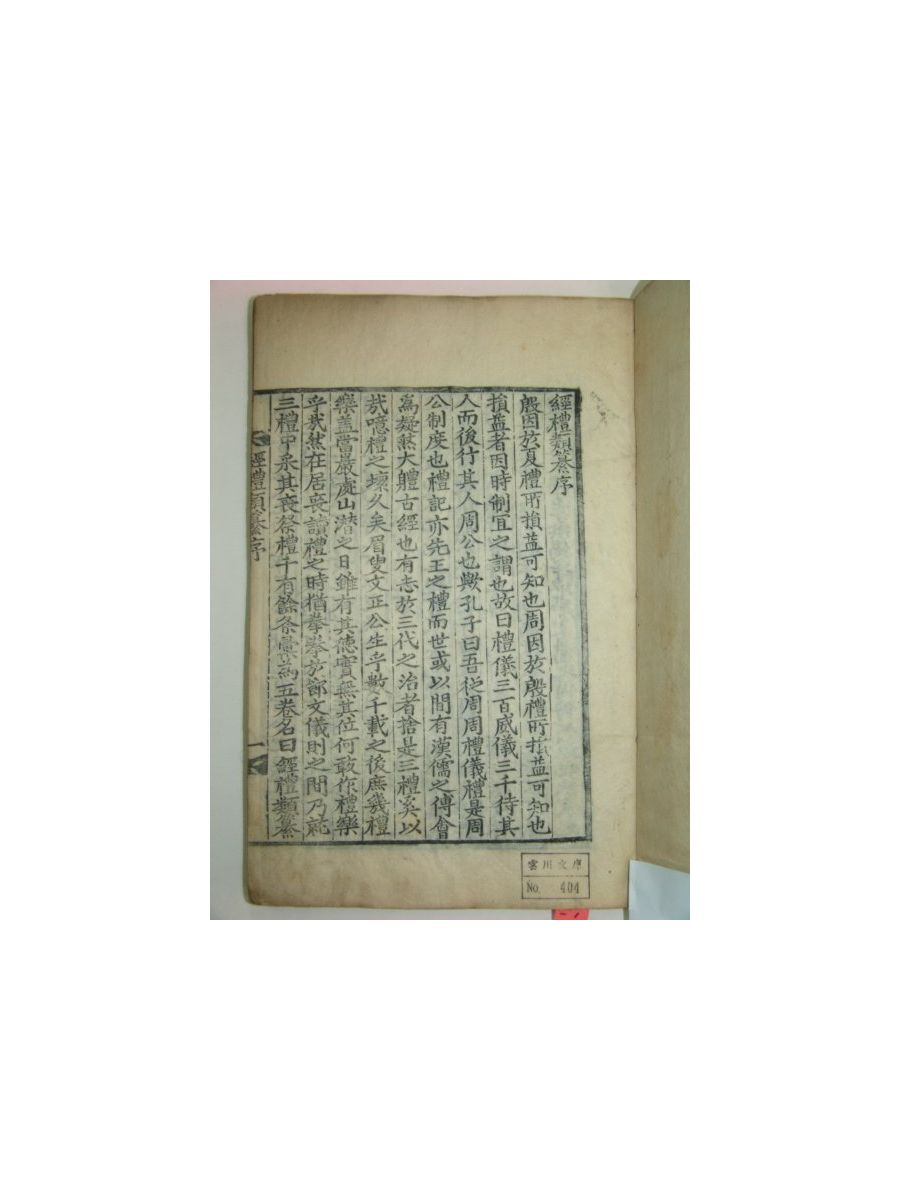 經禮類纂序
殷因於夏禮所損益可知也周因於殷禮所損益可知也
損益者因時制宜之謂也故曰禮儀三百威儀三千待其
人而後行其人周公也歟孔子曰吾從周周禮儀禮是周
公制度也禮記亦先王之禮而世或以間有漢儒之傅會
爲疑然大軆古經也有志於三代之治者捨是三禮奚以
㦲噫禮之壞久矣眉叟文正公生乎數千載之後庶幾禮
樂盖當巖處山潛之日雖有其德實無其位何敢作禮樂
乎㦲然在居丧讀禮之時猶拳拳於節文儀則之間乃就
三禮中采其丧祭禮千有餘条彙爲五卷名曰經禮類纂
經禮類纂序
一
雲川文庫
No. 404